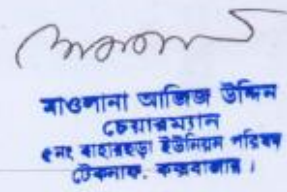 মাওলানা আজিজ উদ্দিন
চেয়ারম্যান
৫নং বাহারছড়া ইউনিয়ন পরিষদ
টেকনাফ, কক্সবাজার।